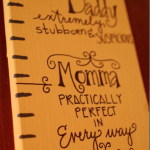 Daddy
extremely
stubborn &
SUSPICIOUS
Momma
PRACTICALLY
PERFECT
IN
Every way